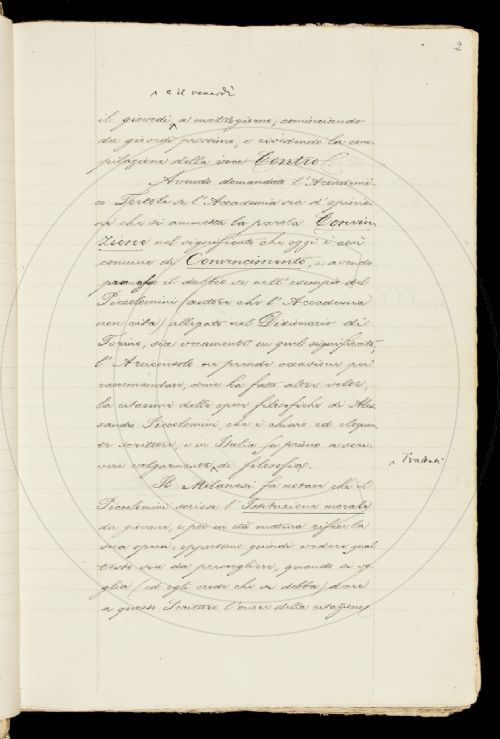 2
e il venerdì
il giovedì, a mezzogiorno, cominciando
da giovedì prossimo, e rividendo la com-
pilazione della voce Contro.
Avendo domandato l'Accademi-
co Tortoli se l'Accademia sia d'opinio-
ne che si ammetta la parola Convin-
zione nel significato che oggi è così
comune di Convincimento, e avendo
promosso il dubbio se nell'esempio del
Piccolomini (autore che l'Accademia
non cita) allegato nel Dizionario di
Torino, sia veramente in quel significato,
l'Arciconsolo ne prende occasione per
raccomandare, come ha fatto altre volte,
la citazione delle opere filosofiche di Ales-
sandro Piccolomini, che è chiaro ed elegan-
te scrittore, e in Italia fu primo a scri-
vere volgarmente di filosofia.
Trattati
Il Milanesi fa notare che il
Piccolomini scrisse l'Istituzione morale
da giovane, e poi in età matura rifece la
sua opera: opportuno quindi vedere qual
testo sia da prescegliere, quando si vo-
glia (ed egli crede che si debba) dare
a questo Scrittore l'onore della citazione